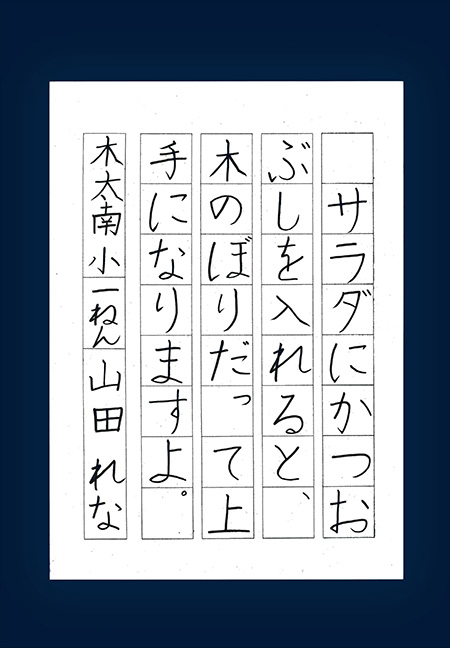 サラダにかつお
ぶしを入れると、
木のぼりだって上
手になりますよ。
木太南小一ねん山田れな